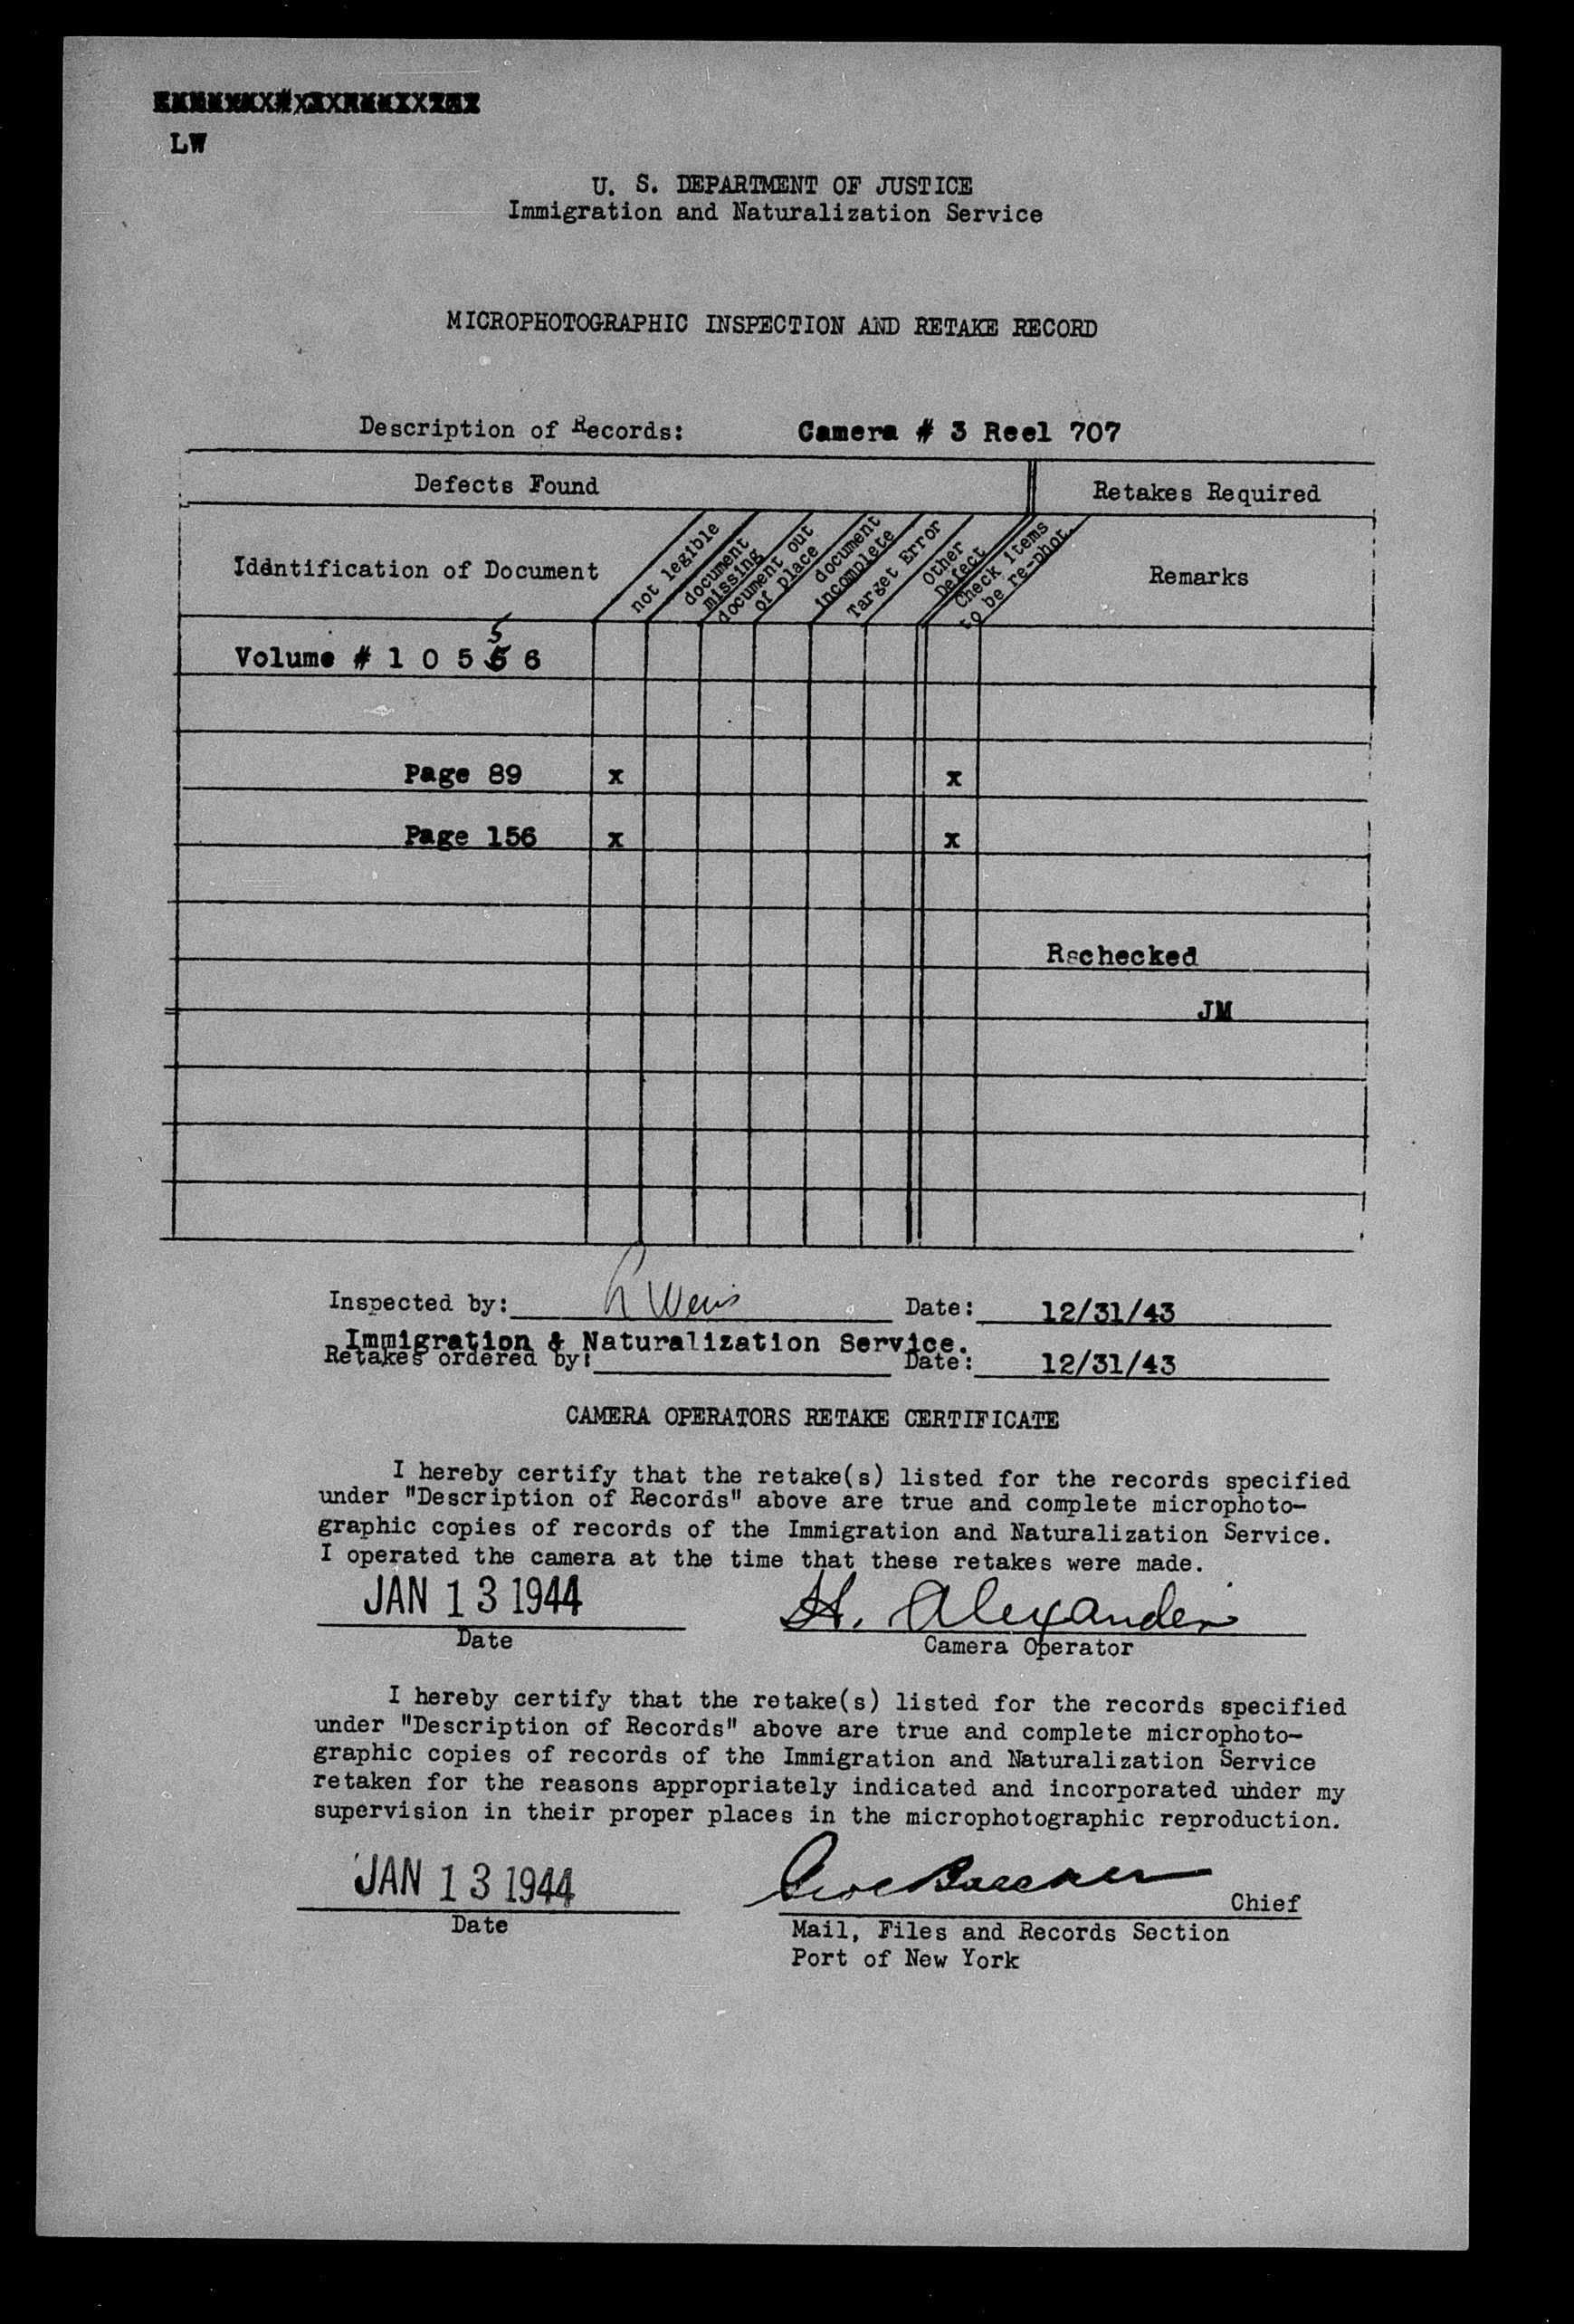 LW
U. S. DEPARTMENT OF JUSTICE
Immigration and Naturalization Service
MICROPHOTOGRAPHIC INSPECTION AND RETAKE RECORD
Description of Records: Camera # 3 Reel 707
Defects Found
Retakes Required
Iddntification of Document
not legible
document missing
document out of place
document incomplete
Target Error
Other Defect
Check items to be re-phot.
Remarks
5
Volume # 1 0 5 5 6
Page 89 x x
Page 156 x x
Rechecked
JM
Inspected by: Date: 12/31/43
Immigration & Naturalization Service.
Retakes ordered by: Date: 12/31/43
CAMERA OPERATORS RETAKE CERTIFICATE
I hereby certify that the retake(s) listed for the records specified
under "Description of Records" above are true and complete microphoto-
graphic copies of records of the Immigration and Naturalization Service.
I operated the camera at the time that these retakes were made.
JAN 13 1944 H. Alexander
Date Camera Operator
I hereby certify that the retake(s) listed for the records specified
under "Description of Records" above are true and complete microphoto-
graphic copies of records of the Immigration and Naturalization Service
retaken for the reasons appropriately indicated and incorporated under my
supervision in their proper places in the microphotographic reproduction.
JAN 13 1944
Chief
Date Mail, Files and Records Section
Port of New York